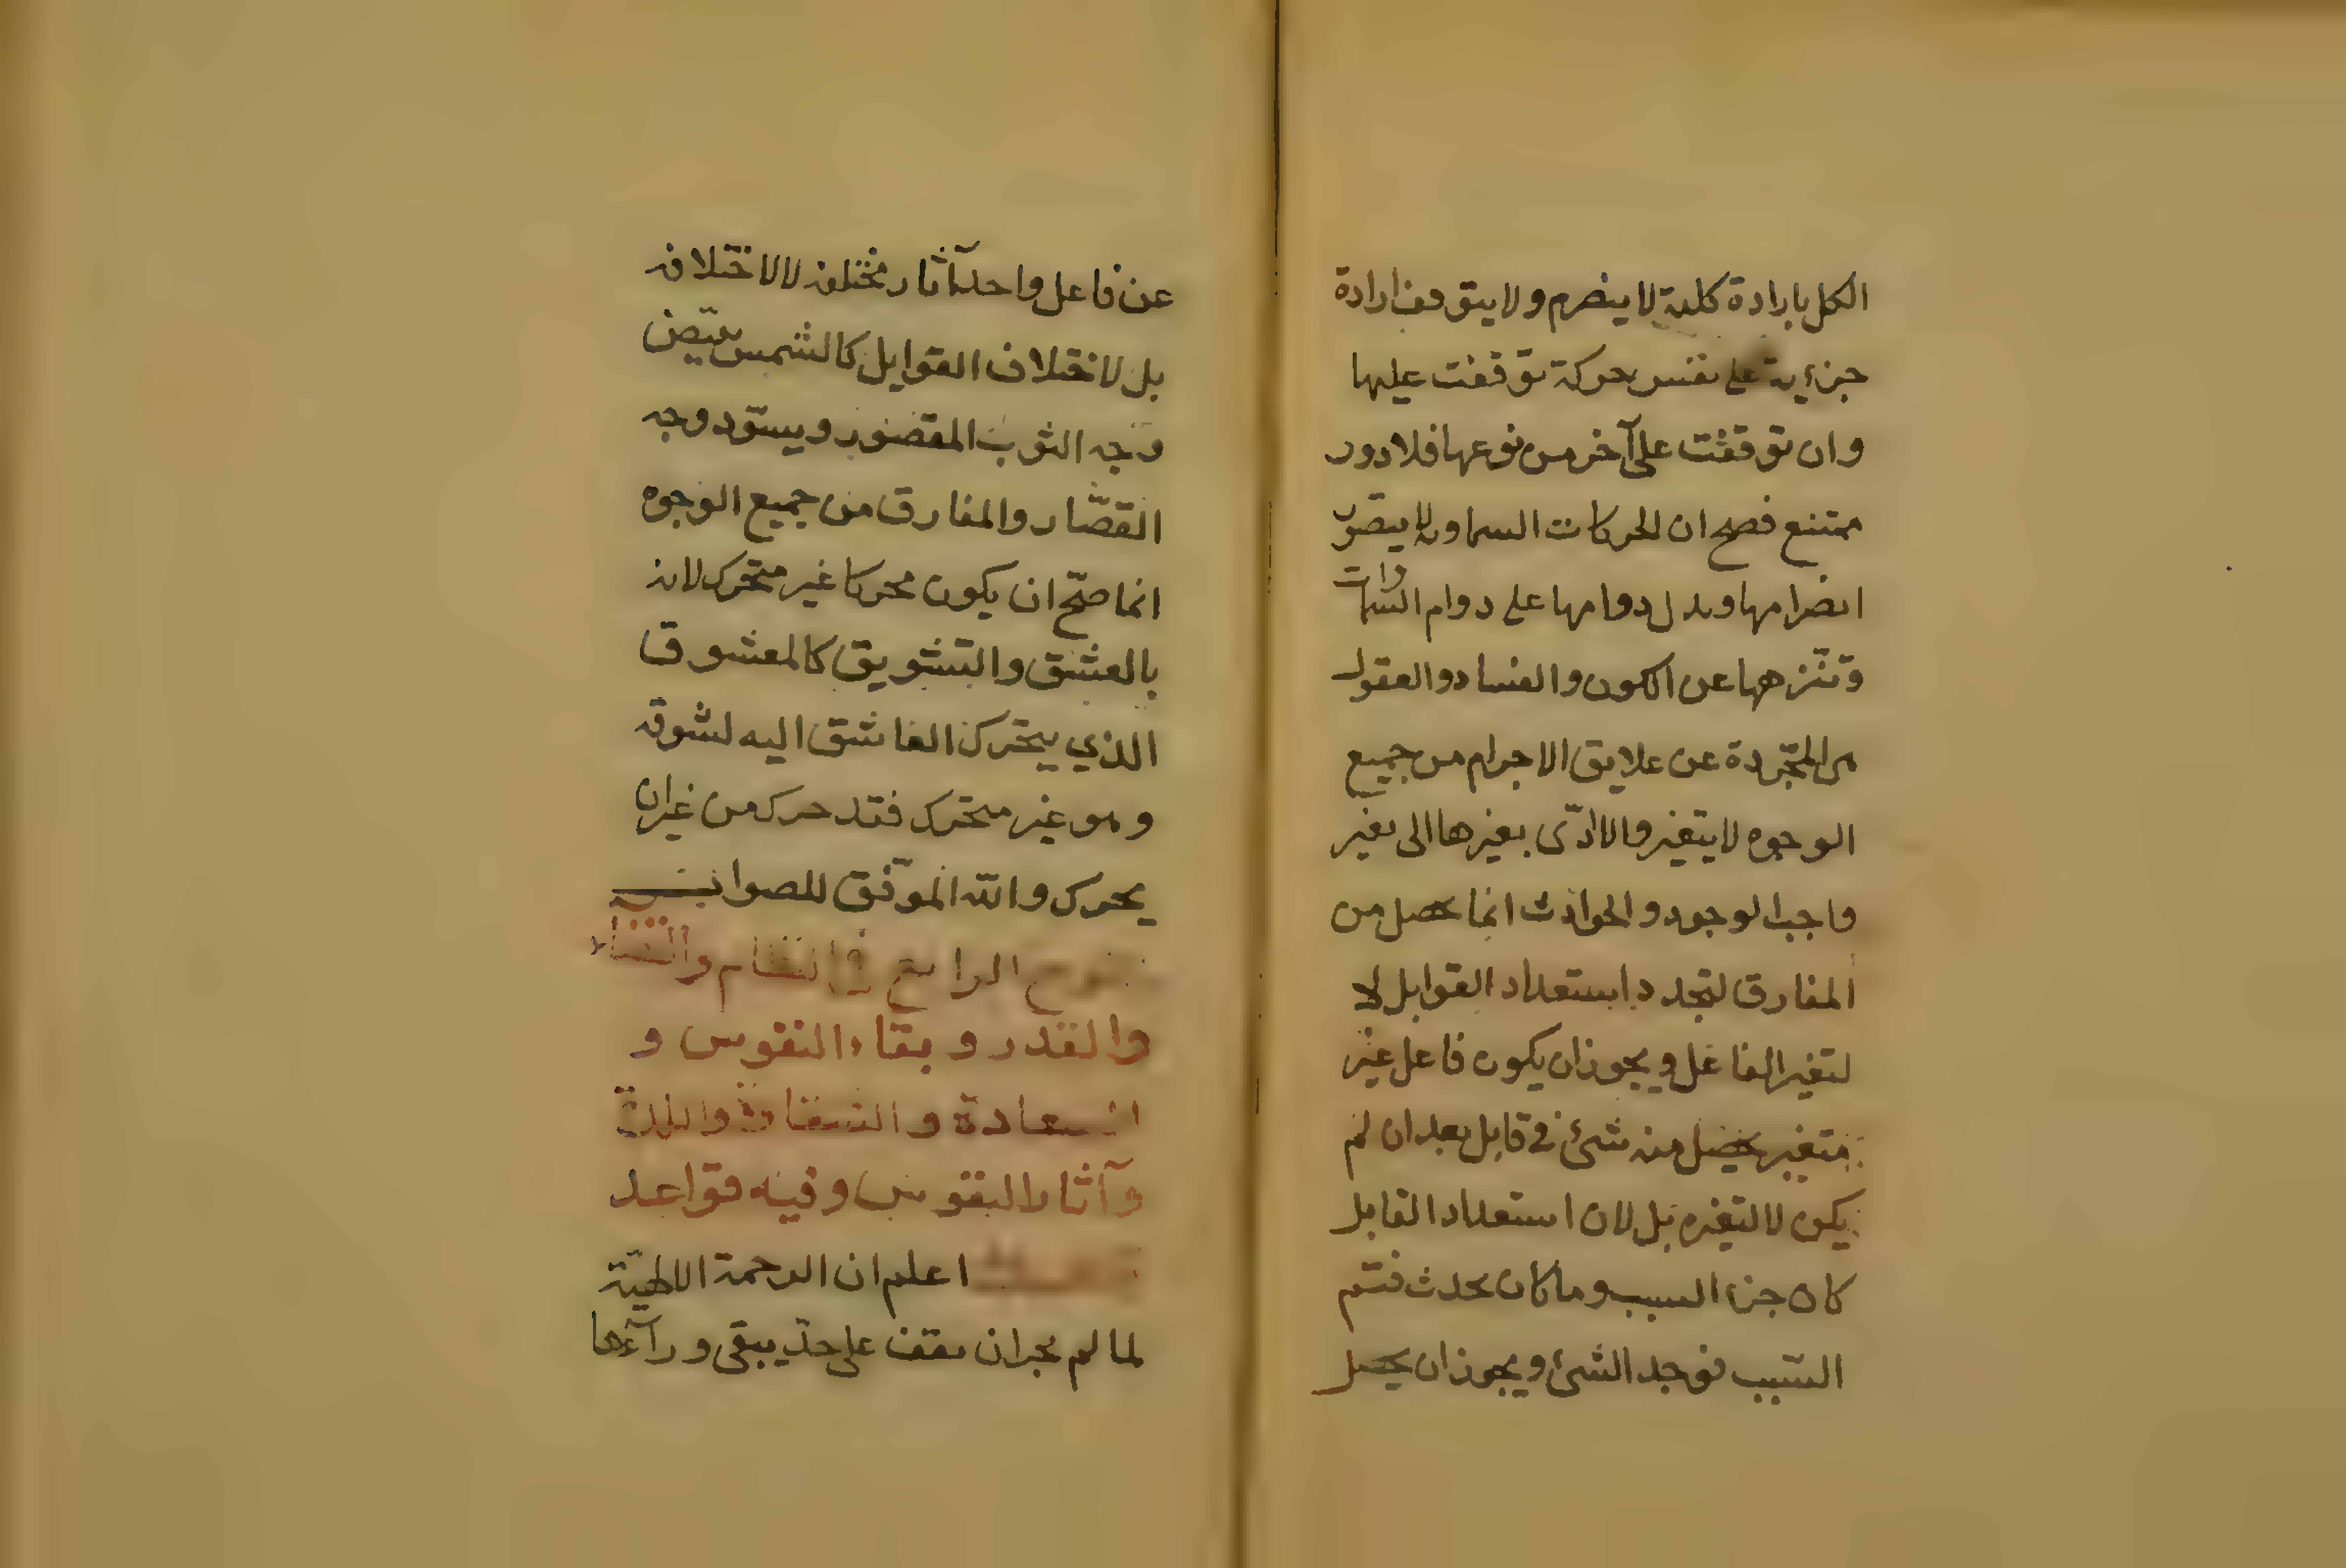 الكل بارادة كلية لا ينصرم ولا يتوقف ارادة
جزءية على نفس حركة توقفت عليها
وان توقفت على آخر من نوعها فلا دور
ممتنع فصح ان الحركات السماوية لا يتصور
انصرامها ويدل دوامها على دوام السماوات
وتنزهها عن الكون والفساد والعقول
المجردة عن علايق الاجرام من جميع
الوجوه لا يتغير والا ادّى بغيرها الى تغير
واجب الوجود والحوادث انما تحصل من
المفارق لتجدد استعداد القوابل لا
لتغير الفاعل ويجوز ان يكون فاعل غير
متغير يحصل منه شئ في قابل بعد ان لم
يكن لا لتغيره بل لان استعداد القابل
كان جزء السبب وما كان يحدث فتم
السبب فوجد الشئ ويجوز ان يحصل
عن فاعل واحد آثار مختلفة لا لاختلافه
بل لاختلاف القوابل كالشمس تبيّض
وجه الثوب المقصور ويسوّد وجه
القصّار والمفارق من جميع الوجوه
انما صحّ ان يكون محركا غير متحرك لانه
بالعشق والتشويق كالمعشوق
الذي يتحرك العاشق اليه لشوقه
وهو غير متحرك فقد حرك من غير ان
يحرك والله الموفق للصواب
الرابع في النظام والقضاء
والقدر وبقاء النفوس و
السعادة والشقاوة واللذة
وآثار النفوس وفيه قواعد
اعلم ان الرحمة الالهيّة
لما لم يجز ان يقف على حدّ يبقى ورآءها